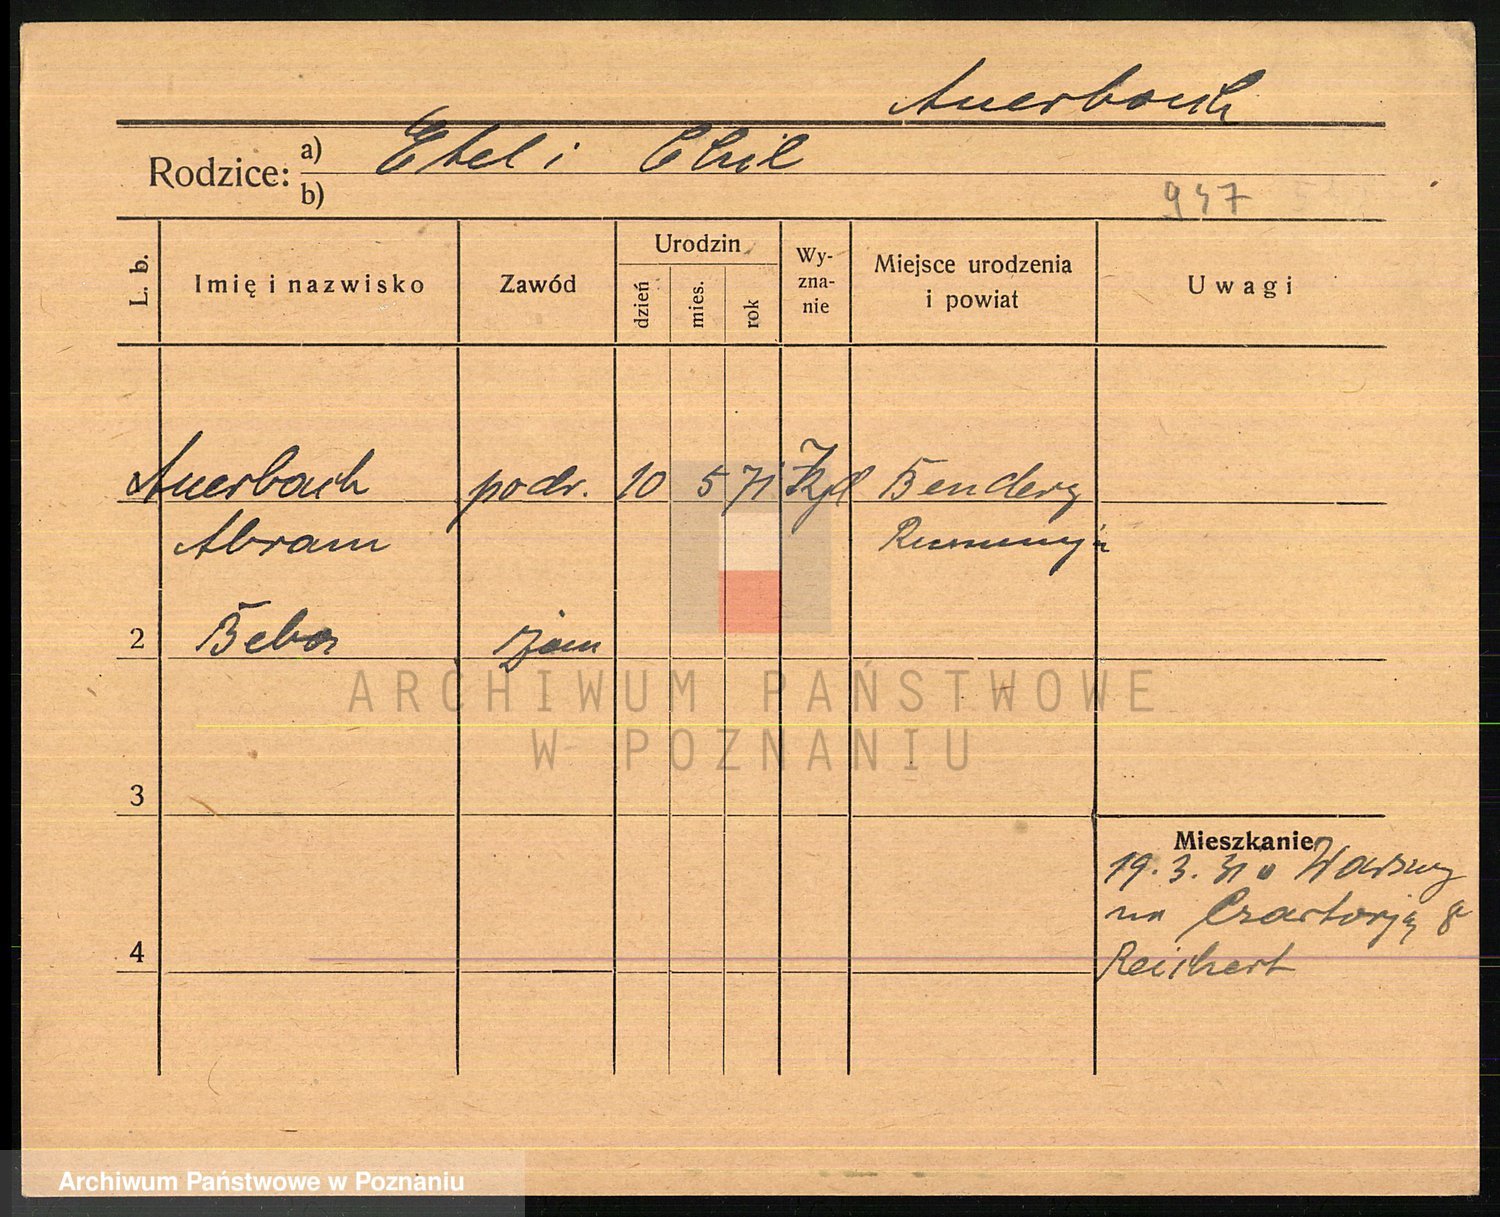 Auerbach
Rodzice: a) Etel i Chil
b)
947
L. b. Imię i nazwisko Zawód Urodzin dzień mies. rok Wyznanie Miejsce urodzenia i powiat Uwagi
Auerbach podr. 10 5 71 Bendery
Abram Rumunja
2 Beba
3
Mieszkanie
19. 3. 31 Warszwy
na Czartorją 8
4 Reichert
ARCHIWUM PAŃSTWOWE
W POZNANIU
Archiwum Państwowe w Poznaniu